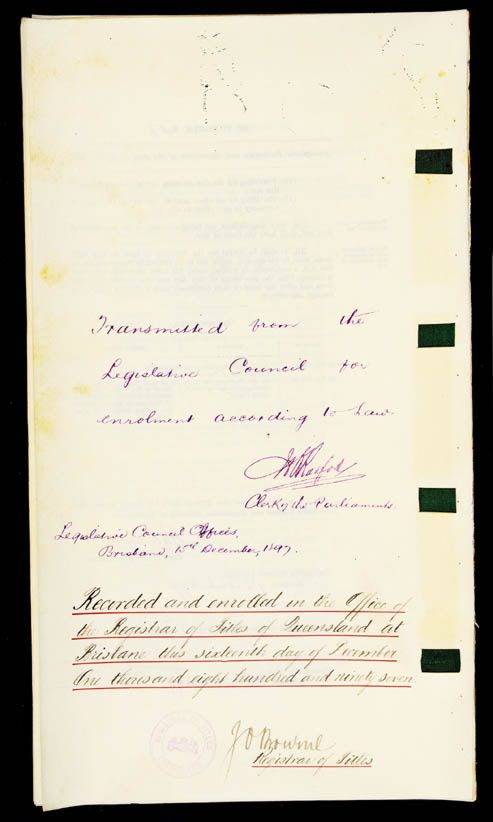 Transmitted from the
Legislative Council for
enrolment according to Law
Clerk of the Parliaments.
Legislative Council Offices,
Brisbane, 15th December, 1897.
Recorded and enrolled in the Office of
the Registrar of Titles of Queensland at
Brisbane this sixteenth day of December
One thousand eight hundred and ninety seven.
J O Bourne
Registrar of Titles